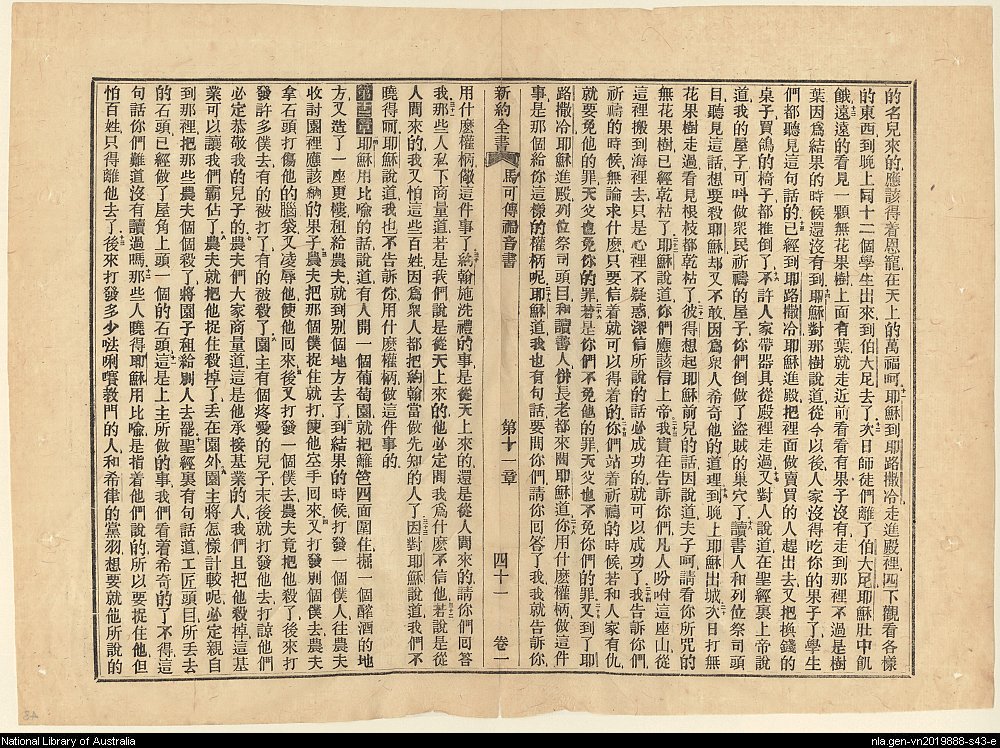 的名兒來的應該得着恩寵在天上的萬福呵耶穌到耶路撒冷走進殿裡四下觀看各樣
的東西到晚上同十二個學生出來到伯大尼去了次日師徒們離了伯大尼耶穌肚中飢
餓遠遠的看見一顆無花果樹上面有葉就走近前看看有果子沒有走到那裡不過是樹
葉因爲結果的時候還沒有到耶穌對那樹說道從今以後人家沒得吃你的果子了學生
們都聽見這句話的已經到耶路撒冷耶穌進殿把裡面做賣買的人趕出去又把換錢的
桌子買鴿的椅子都推倒了不許人家帶器具從殿裡走過又對人說道在聖經裏上帝說
道我的屋子可呌做衆民祈禱的屋子你們倒做了盜賊的巢穴了讀書人和列位祭司頭
目聽見這話想要殺耶穌却又不敢因爲衆人希奇他的道理到晚上耶穌出城次日打無
花果樹走過看見根枝都乾枯了彼得想起耶穌前兒的話因說道夫子呵請看你所咒的
無花果樹已經乾枯了耶穌說道你們應該信上帝我實在告訴你們凡人吩咐這座山從
這裡搬到海裡去只是心裡不疑惑深信所說的話必成功的就可以成功了我告訴你們
祈禱的時候無論求什麼只要信着就可以得着的你們站着祈禱的時候若和人家有仇
就要免他的罪天父也免你的罪若是你們不免他的罪天父也不免你們的罪又到了耶
路撒冷耶穌進殿列位祭司頭目和讀書人併長老都來問耶穌道你用什麼權柄做這件
事是那個給你這樣的權柄呢耶穌道我也有句話要問你們請你回答了我我就告訴你
新約全書 馬可傳福音書 第十一章 四十一 卷一
用什麼權柄做這件事了約翰施洗禮的事是從天上來的還是從人間來的請你們回答
我那些人私下商量道若是我們說是從天上來的他必定問我爲什麼不信他若說是從
人間來的我又怕這些百姓因爲衆人都把約翰當做先知的人了因對耶穌說道我們不
曉得呵耶穌說道我也不告訴你用什麼權柄做這件事的
第十二章耶穌用比喻的話說道有人開一個葡萄園就把籬笆四面圍住掘一個醡酒的地
方又造了一座更樓租給農夫就到別個地方去了到結果的時候打發一個僕人往農夫
收討園裡應該納的果子農夫把那個僕捉住就打使他空手囘來又打發別個僕去農夫
拿石頭打傷他的腦袋又凌辱他使他囘來後又打發一個僕去農夫竟把他殺了後來打
發許多僕去有的被打了有的被殺了園主有個疼愛的兒子末後就打發他去打諒他們
必定恭敬我的兒子的農夫們大家商量道這是他承接基業的人我們且把他殺掉這基
業可以讓我們霸佔了農夫就把他捉住殺掉了丟在園外園主將怎樣計較呢必定親自
到那裡把那些農夫個個殺了將園子租給別人去罷聖經裏有句話道工匠頭目所丟去
的石頭已經做了屋角上頭一個的石頭這是上主所做的事我們看着希奇的了不得這
句話你們難道沒有讀過嗎那些人曉得耶穌用比喻是指着他們說的所以要捉住他但
怕百姓只得離他去了後來打發多少𠵽唎嚽教門的人和希律的黨羽想要就他所說的
National Library of Australia
nla.gen-vn2019888-s43-e